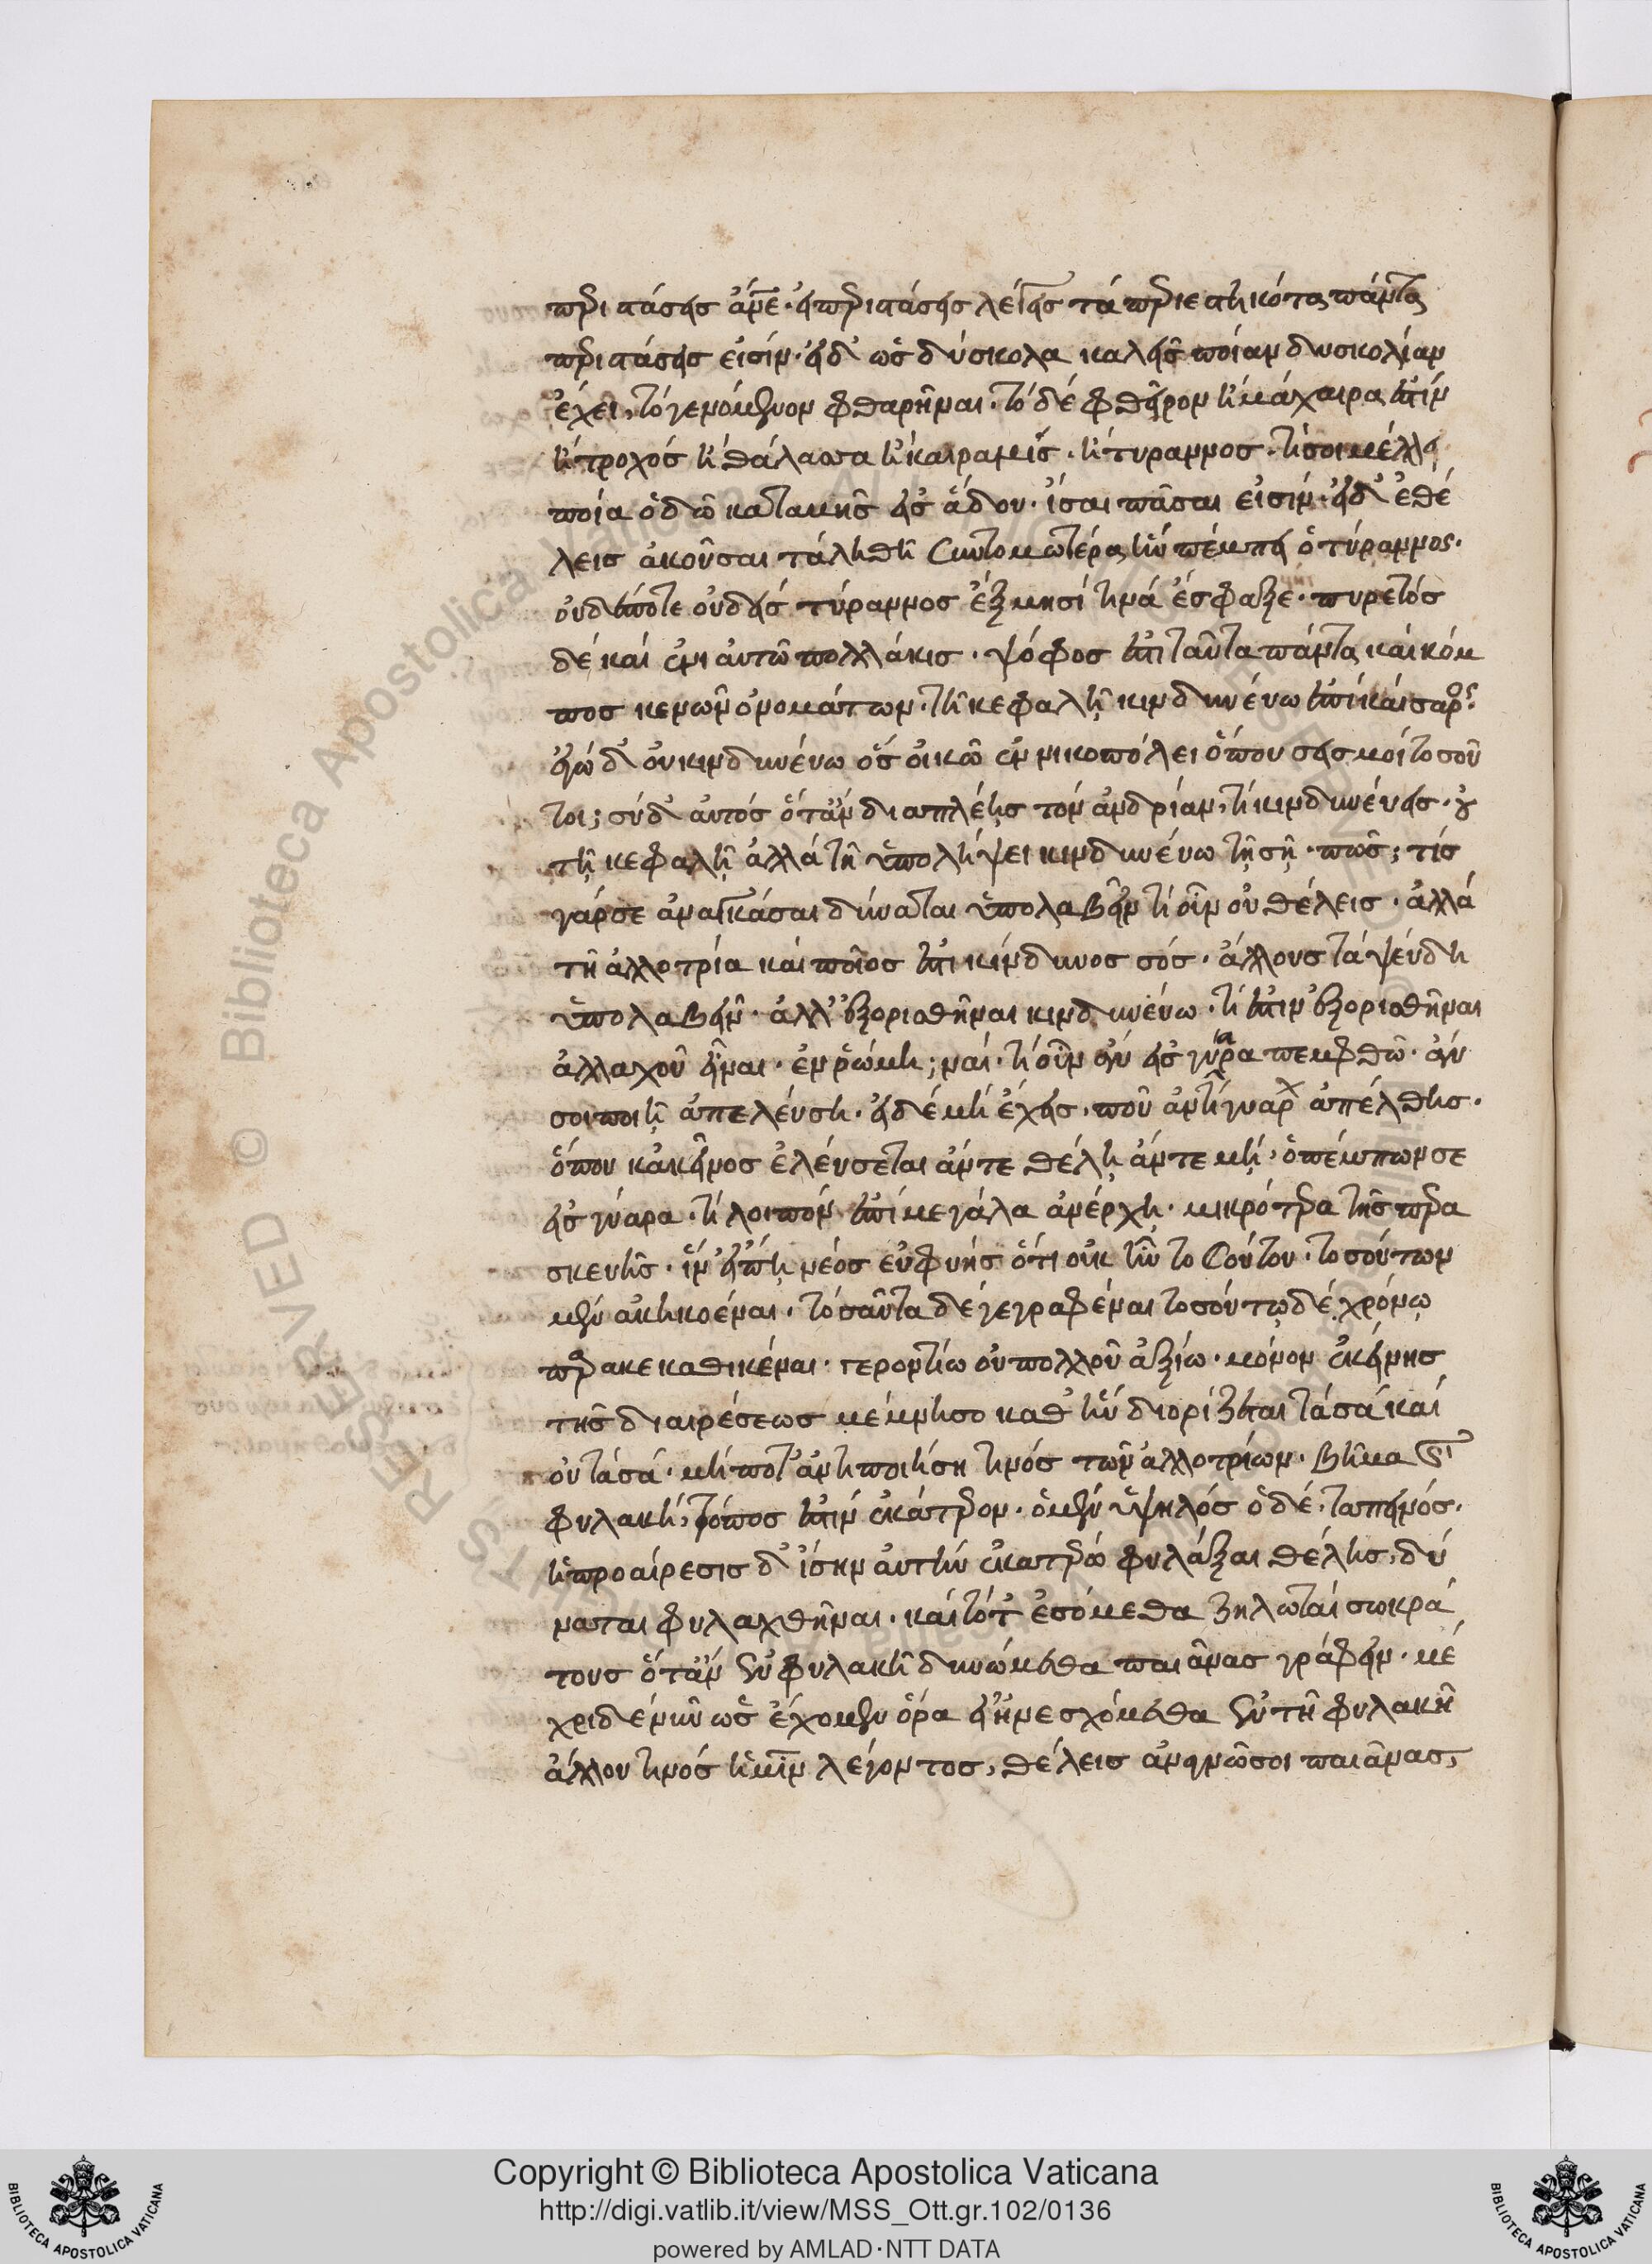 περιστάσεις ἄνε. εἰ περιστάσεις λέγεις τὰ περιεστηκότα πάντα
περιστάσεις εἰσίν. εἰ δ' ὡς δύσκολα καλεῖς ποίαν δυσκολίαν
ἔχει, τὸ γενόμενον φθαρῆναι. τὸ δὲ φθεῖρον ἢ μάχαιρα ἐστὶν
ἢ τροχὸς ἢ θάλασσα ἢ κεραμὶς. ἢ τύραννος. τί σοι μέλλει
ποία ὁδῶ καταβῆς εἰς ἅδου. ἴσαι πᾶσαι εἰσίν. εἰ δ' ἐθέ
λεις ἀκοῦσαι τἀληθῆ συντομωτέρα ἣν πέμπει ὁ τύραννος.
οὐδέποτε οὐδεὶς τύραννος ἓξ μησί τινὰ ἔσφαξε. πυρετὸς
δὲ καὶ ἐνιαυτῶ πολλάκις. ψόφος ἐστὶ ταῦτα πάντα καὶ κόμ
πος κενῶν ὀνομάτων. τῆ κεφαλῆ κινδυνεύω ἐπὶ καίσαρος.
ἐγὼ δ' οὐ κινδυνεύω ὃς οἰκῶ ἐν νικοπόλει ὅπου σεισμοὶ τοσοῦ
τοι; σὺ δ' αὐτὸς ὅταν διαπλέης τὸν ἀνδρίαν, τί κινδυνεύεις. οὐ
τῆ κεφαλῆ ἀλλὰ τῆ ὑπολήψει κινδυνεύω τῆ σῆ. πῶς; τίς
γάρ σε ἀναγκάσαι δύναται ὑπολαβεῖν τί ὧν οὐ θέλεις. ἀλλὰ
τῆ ἀλλοτρία καὶ ποῖος ἐστὶ κίνδυνος σός. ἄλλους τὰ ψεύδη
ὑπολαβεῖν. ἀλλ' ἐξορισθῆναι κινδυνεύω. τί ἐστὶν ἐξορισθῆναι
ἀλλαχοῦ εἶναι. ἐν ῥώμη; ναί. τί οὖν ἂν εἰς γύαρα πεμφθῶ. ἄν
σοι ποιῆ ἀπελεύση. εἰ δὲ μὴ ἔχεις. ποῦ ἀντὶ γυάρων ἀπέλθης.
ὅπου κἀκεῖνος ἐλεύσεται ἄντε θέλη ἄντε μή. ὁ πέμπων σε
εἰς γύαρα. τί λοιπὸν ἐπὶ μεγάλα ἀνέρχη. μικρότερα τῆς παρα
σκευῆς. ἵν' εἴπη νέος εὐφυὴς ὅτι οὐκ ἦν τοσούτου. τοσούτων
μὲν ἀκηκοέναι. τοσαῦτα δὲ γεγραφέναι τοσούτω δὲ χρόνω
παρακεκαθικέναι. γεροντίω οὐ πολλοῦ ἀξίω. μόνον ἐκείνης
τῆς διαιρέσεως μέμνησο καθ' ἣν διορίζεται τὰ σὰ καὶ
οὐ τὰ σά. μή ποτ' ἀντιποιήση τινὸς τῶν ἀλλοτρίων. βῆμα καὶ
φυλακή, τόπος ἐστὶν ἑκάτερον. ὁ μὲν ὑψηλὸς ὁ δὲ. ταπεινός.
ἡ προαίρεσις δ' ἴσην αὐτὴν ἑκατέρω φυλάξαι θέλης, δύ
ναται φυλαχθῆναι. καὶ τότ' ἐσόμεθα ζηλωταὶ σωκρά
τους ὅταν ἐν φυλακῆ δυνώμεθα παιᾶνας γράφειν. μέ
χρι δὲ νῦν ὡς ἔχομεν ὅρα εἰ ἠνεσχόμεθα ἐν τῆ φυλακῆ
ἄλλου τινὸς ἡμῖν λέγοντος, θέλεις ἀναγνῶ σοι παιᾶνας,
Copyright © Biblioteca Apostolica Vaticana
http://digi.vatlib.it/view/MSS_Ott.gr.102/0136
powered by AMLAD·NTT DATA